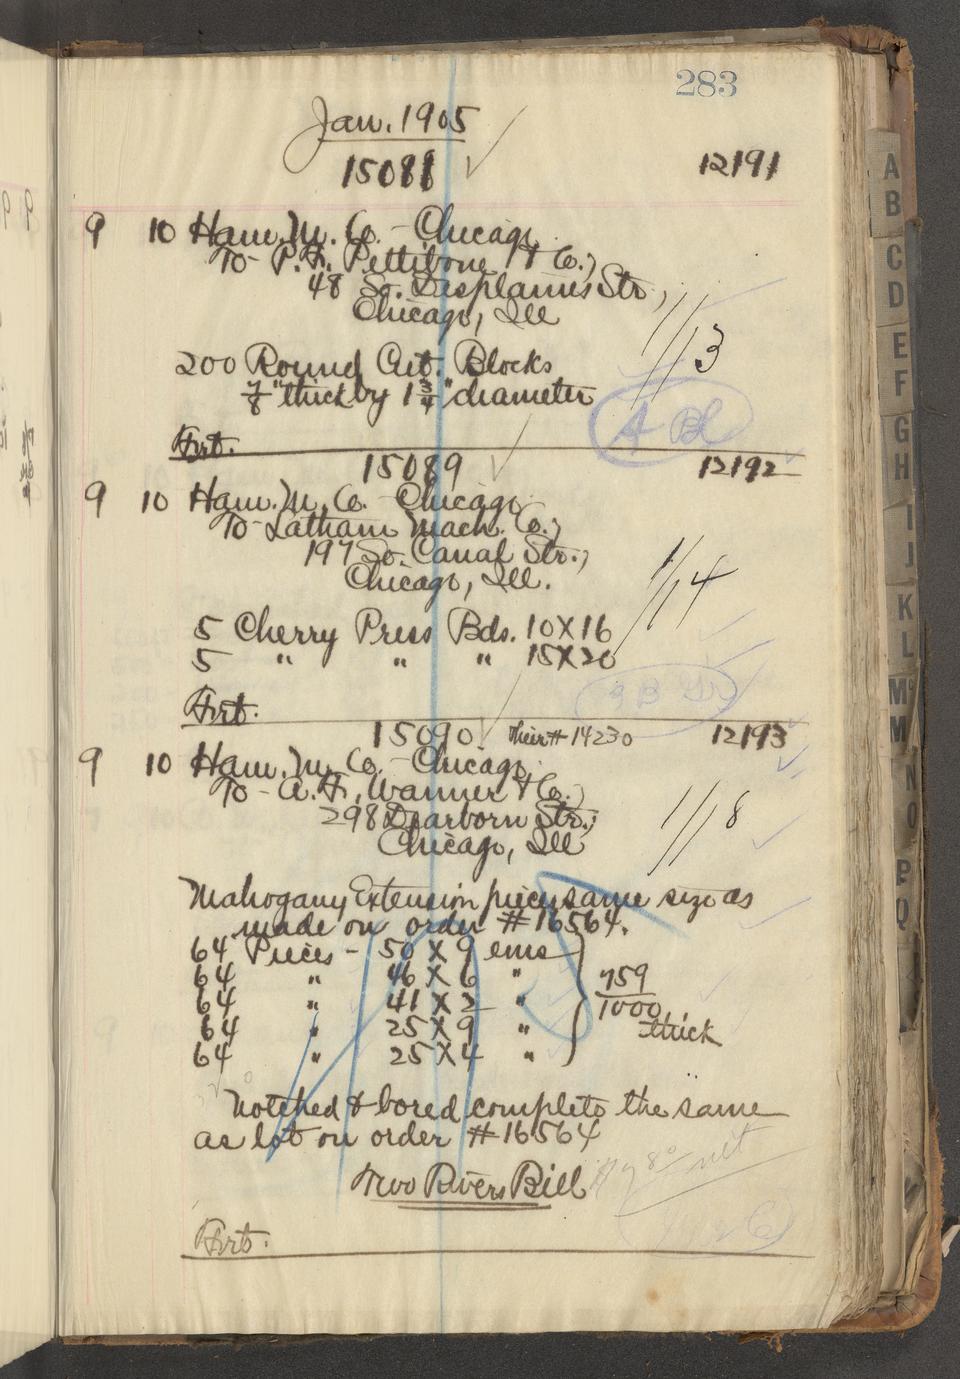 283
Jan. 1905
15088 12191
9 10 Ham. M. Co. - Chicago
To - P. F. Pettibone & Co.,
48 So. Desplaines Str.,
Chicago, Ill
1/13
200 Round Cut. Blocks
7/8" thick by 1 3/4" diameter
A Bl
Frt.
15089 12192
9 10 Ham. M. Co. - Chicago
To - Latham Mach. Co.,
197 So. Canal Str.,
Chicago, Ill.
1/14
5 Cherry Press Bds. 10 X 16
5 " " " 15 X 20
Frt.
15090 Their # 14230 12193
9 10 Ham. M. Co. - Chicago
To - A. F. Wanner & Co.,
298 Dearborn Str.,
Chicago, Ill
1/18
Mahogany Extension pieces same size as
made on order #16564.
64 Pieces - 50 X 9 ems
64 " 46 X 6 "
64 " 41 X 2 "
64 " 25 X 9 "
64 " 25 X 4 "
759/1000 thick
Notched & bored complete the same
as lot on order #16564
Two Rivers Bill
net
Frt.
A
B
C
D
E
F
G
H
I
J
K
L
Mc
M
N
O
P
Q